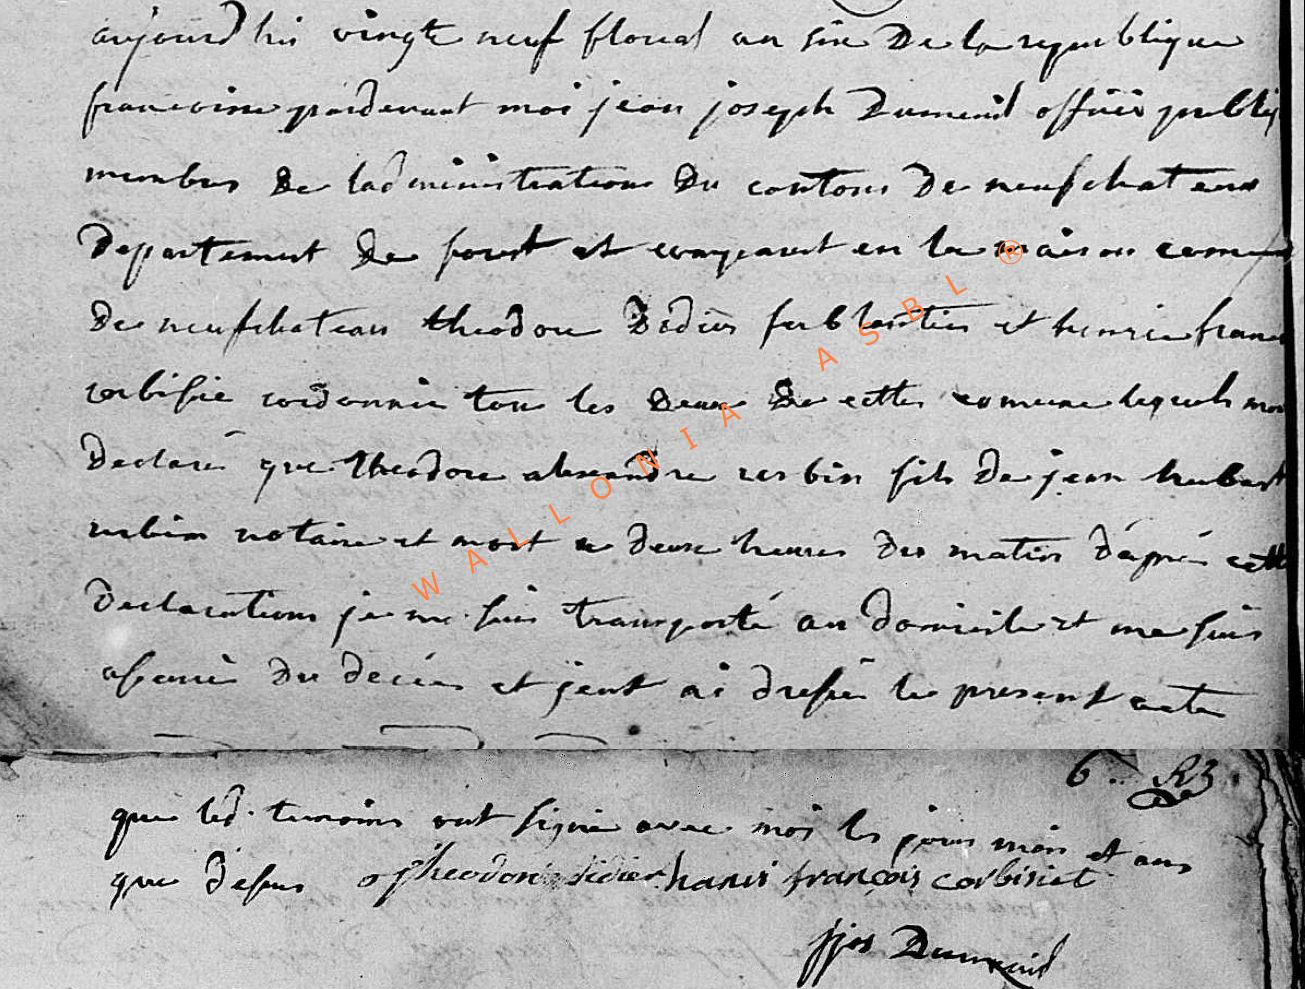 aujourdhui vingt neuf floreal an six De la republique
francoise pardevant moi jean joseph Dumenil officier publiq
membres De ladministration Du canton De neufchateau
Departement De forest et comparut en la maison comune
De neufchateau theodore Didier ferblantier et henrie franc
corbisie cordonnie tou les Deux De cette comune lequels mon
Declaré que theodore alexandre cerbin fils De jean hubert
notaire et mort a Deux heures Du matin D'apré cette
Declaration je me suis transporté au Domicile et me suis
assurré Du deces et jeut ai dressé le present acte
6.. R3
que led. temoins ont signé avec moi les jours mois et ans
que Dessus theodore didier hanri françois corbisiet
jjos Dumenil
WALLONIA ASBL ®